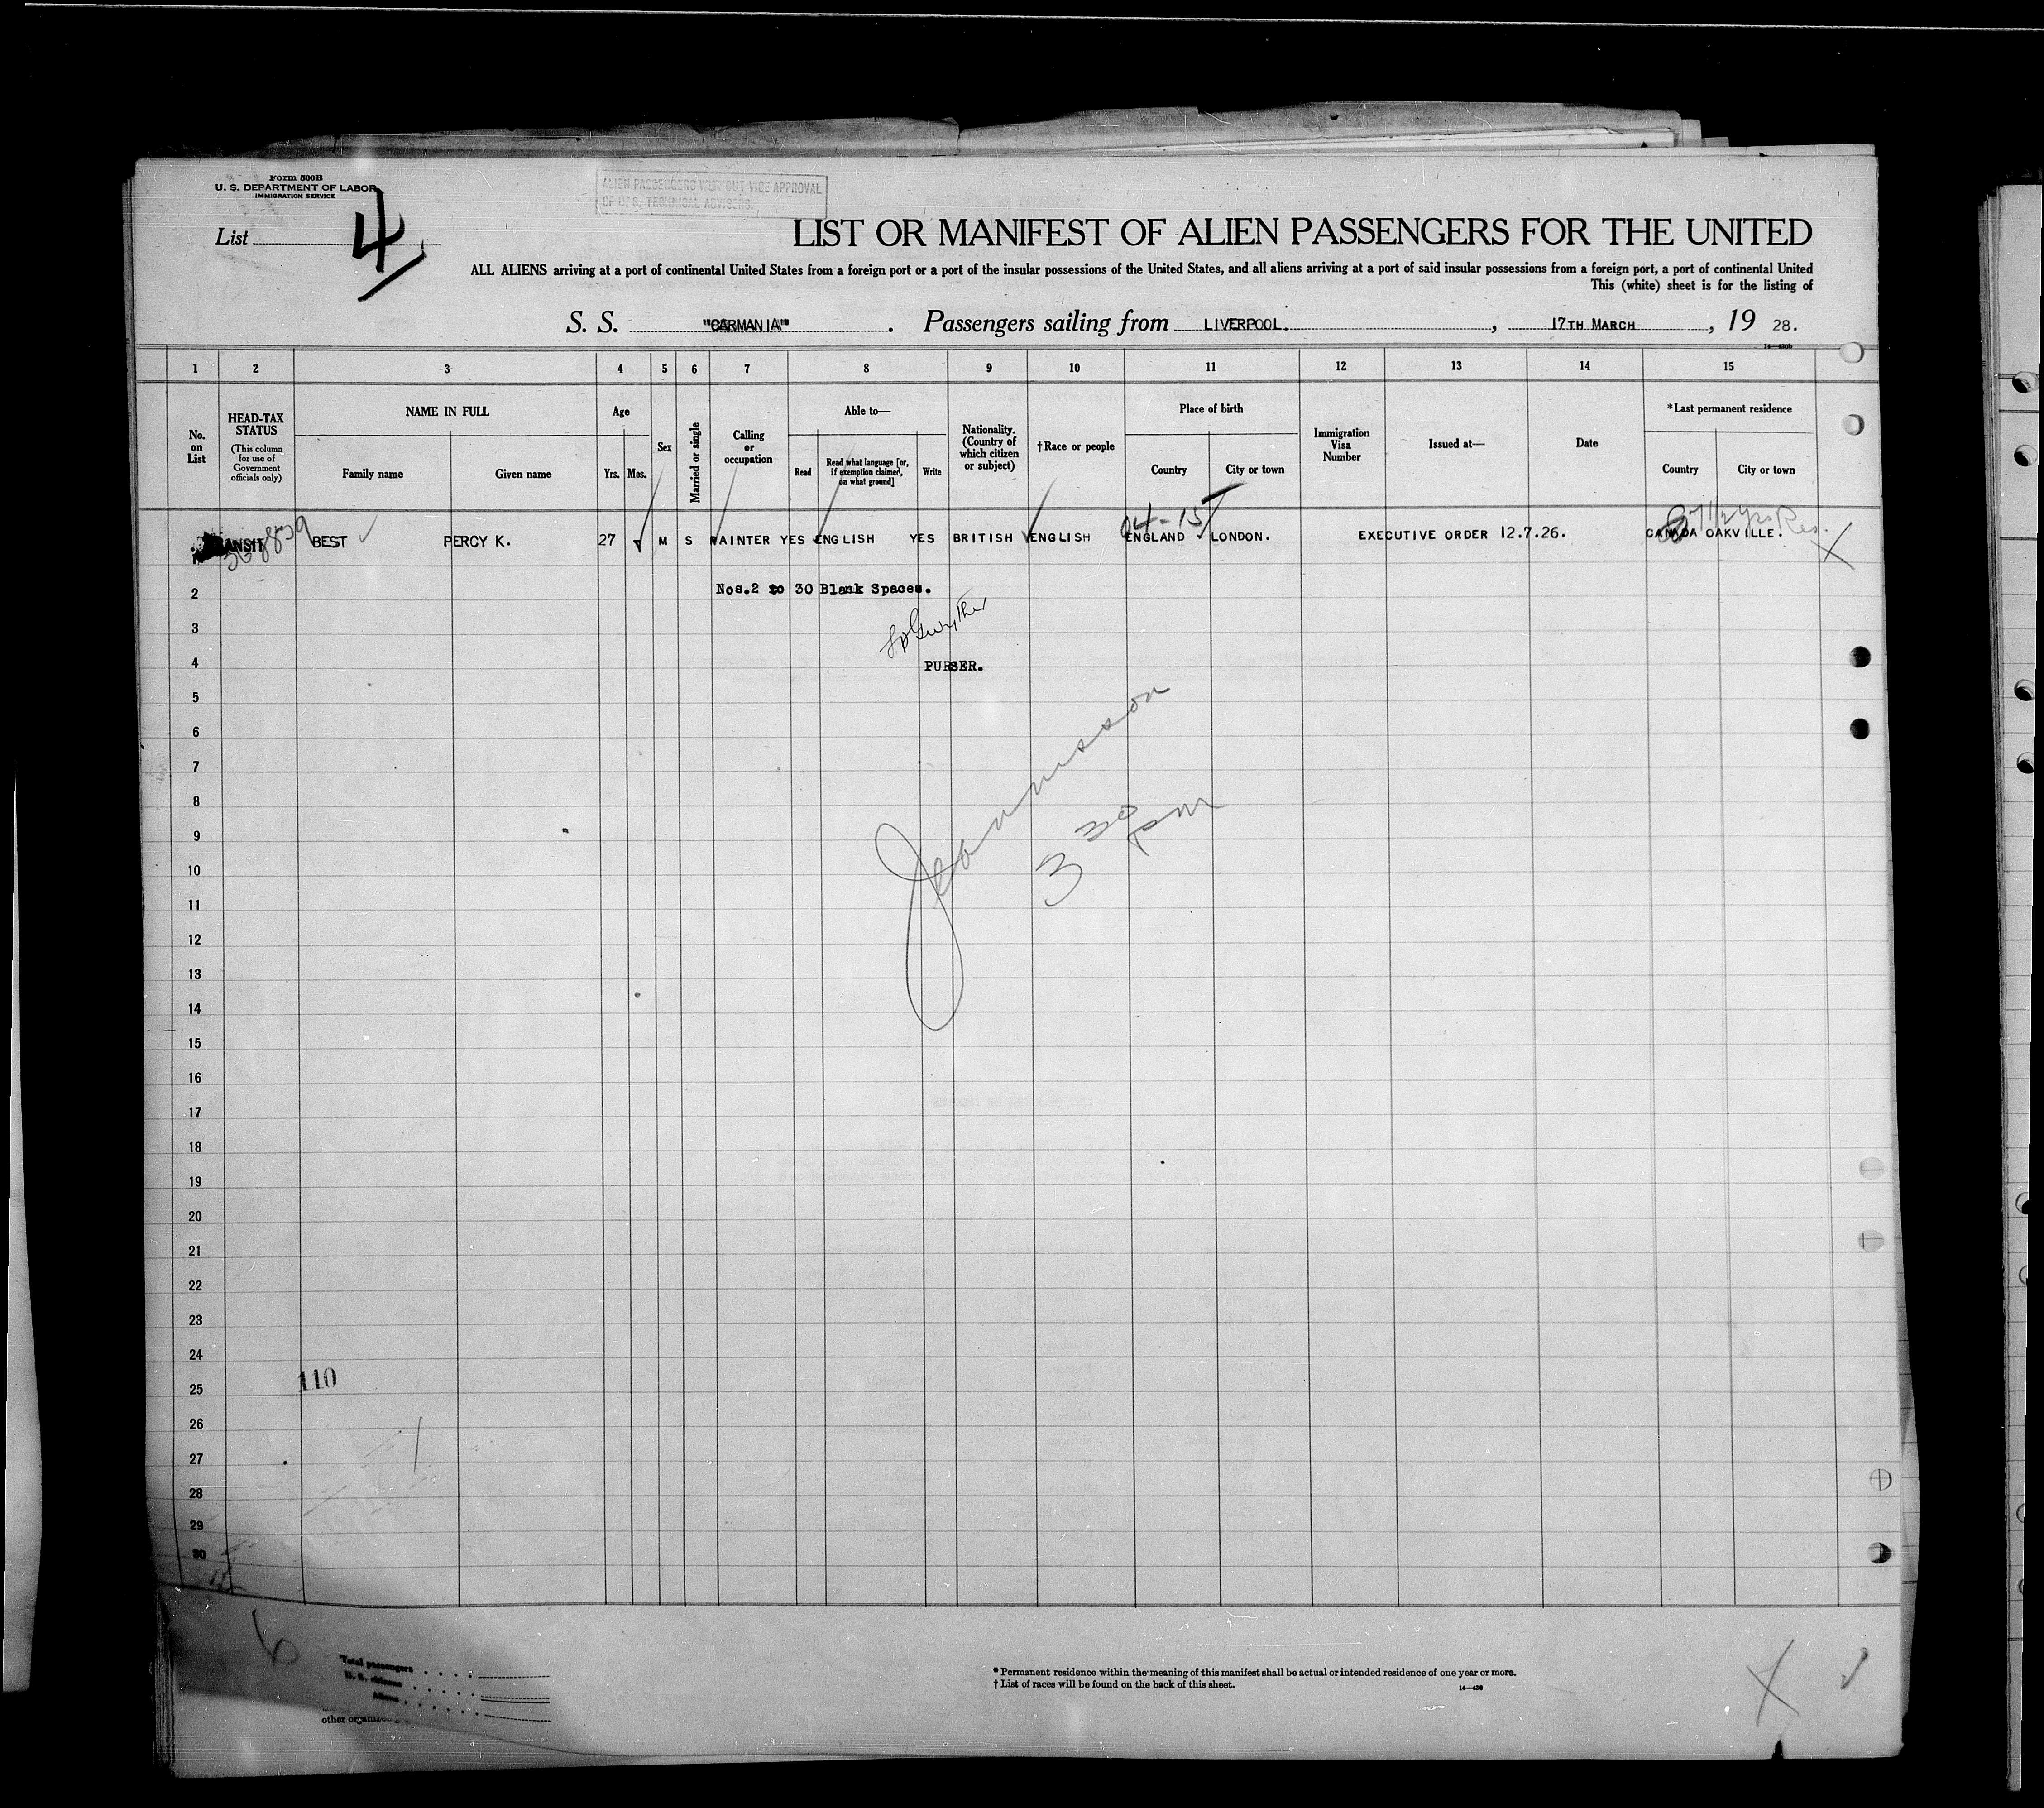 Form 500B
U. S. DEPARTMENT OF LABOR
IMMIGRATION SERVICE
ALIEN PASSENGERS WITHOUT VICE APPROVAL
OF U. S. TECHNICAL ADVISERS.
List 4
LIST OR MANIFEST OF ALIEN PASSENGERS FOR THE UNITED
ALL ALIENS arriving at a port of continental United States from a foreign port or a port of the insular possessions of the United States, and all aliens arriving at a port of said insular possessions from a foreign port, a port of continental United
This (white) sheet is for the listing of
S. S. "CARMANIA" . Passengers sailing from LIVERPOOL. , 17TH MARCH , 19 28.
1 2 3 4 5 6 7 8 9 10 11 12 13 14 15
No. on List
HEAD-TAX STATUS
(This column for use of Government officials only)
NAME IN FULL
Family name
Given name
Age
Yrs. Mos.
Sex
Married or single
Calling or occupation
Able to—
Read
Read what language [or, if exemption claimed, on what ground]
Write
Nationality. (Country of which citizen or subject)
†Race or people
Place of birth
Country
City or town
Immigration Visa Number
Issued at—
Date
*Last permanent residence
Country
City or town
04-15
BEST PERCY K. 27 M S PAINTER YES ENGLISH YES BRITISH ENGLISH ENGLAND LONDON. EXECUTIVE ORDER 12.7.26. CANADA OAKVILLE.
1
2 Nos.2 to 30 Blank Spaces.
3
4 PURSER.
5
6
7
8
9
3 30 pm
10
11
12
13
14
15
16
17
18
19
20
21
22
23
24
110
25
26
27
28
29
30
6
Total passengers
U. S. citizens
Aliens
* Permanent residence within the meaning of this manifest shall be actual or intended residence of one year or more.
† List of races will be found on the back of this sheet.
14—430